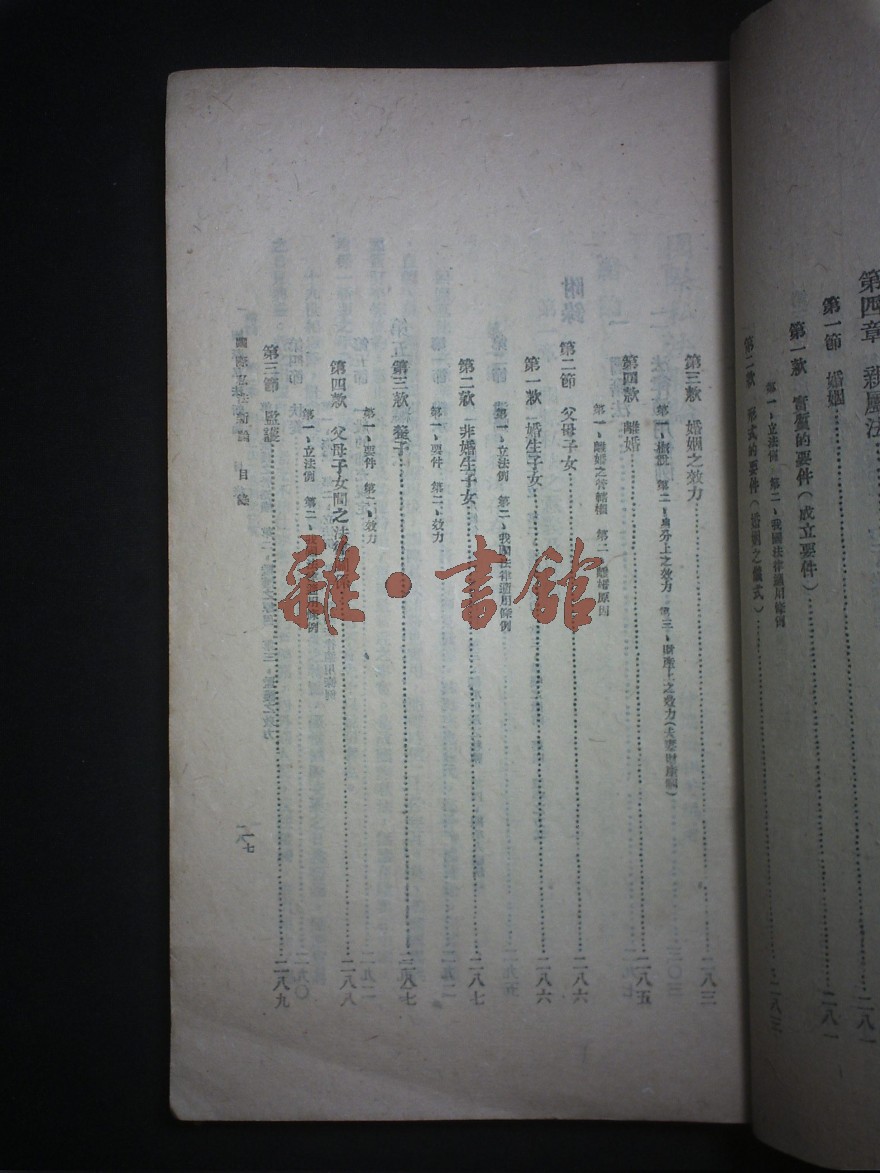 第四章　親屬法
第一節　婚姻……二八一
第一款　實質的要件（成立要件）……二八一
第一、立法例　第二、我國法律適用條例
第二款　形式的要件（婚姻之儀式）……二八二
第三款　婚姻之效力……二八三
第一、 第二、身分上之效力　第三、財產上之效力（夫妻財產制）
第四款　離婚……二八五
第一、離婚之管轄權　第二、離婚原因
第二節　父母子女……二八六
第一款　婚生子女……二八六
第一、立法例　第二、我國法律適用條例
第二款　非婚生子女……二八七
第一、要件　第二、效力
第三款　養子……二八七
第一、要件　第二、效力
第四款　父母子女間之法……二八八
第一、立法例　第二、 用條例
第三節　監護……二八九
國際私法新論　目錄
雜·書館